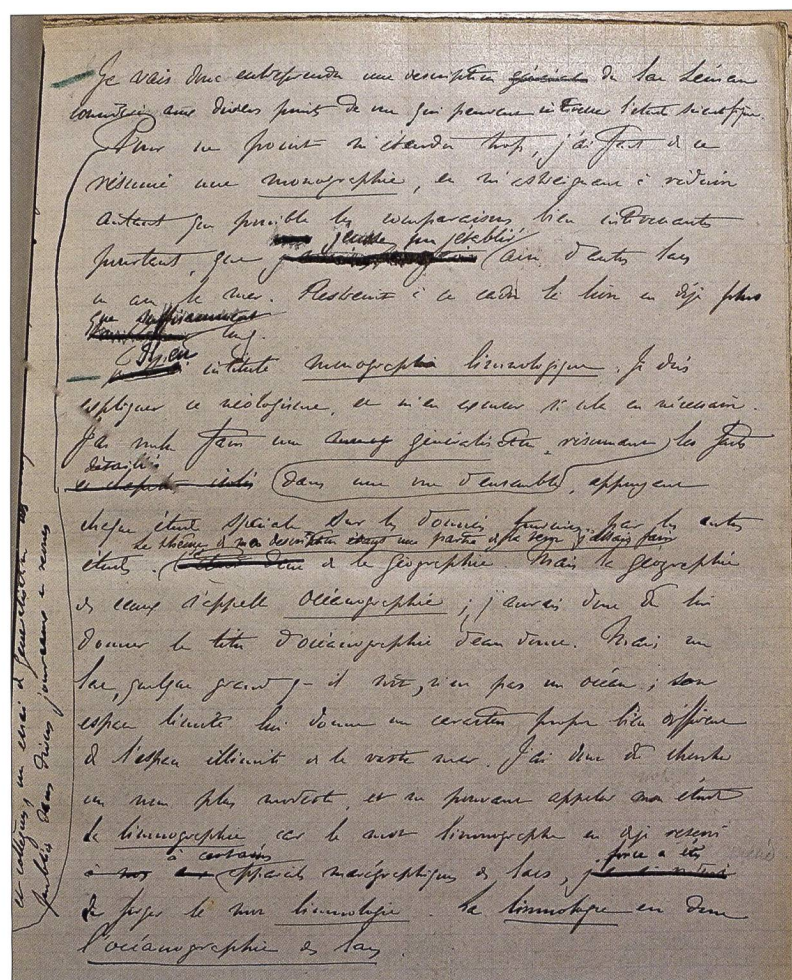 Je vais donc entreprendre une description générale du lac Léman
considéré aux divers points de vue qui peuvent intéresser l'étude scientifique.
Pour ne point m'étendre trop, j'ai fait de ce
résumé une monographie, en m'astreignant à réduire
autant que possible les comparaisons bien intéressantes
pourtant, que j'eusse pu établir avec d'autres lacs
ou avec la mer. Restreint à ce cadre le livre est déjà plus
que suffisamment long.
intitulé monographie limnologique. Je dois
expliquer ce néologisme, et m'en excuser si cela est nécessaire.
J'ai voulu faire une généralisation, résumant les faits
détaillés dans une vue d'ensemble, appuyant
chaque étude spéciale sur les données fournies par les autres
Le thème de ma description étant une partie de la terre j'allais faire
études. de la géographie. Mais la géographie
des eaux s'appelle océanographie ; j'aurais donc dû lui
donner le titre d'océanographie d'eau douce. Mais un
lac, quelque grand qu'il soit, n'est pas un océan ; son
espace limité lui donne un caractère propre bien différent
de l'espace illimité de la vaste mer. J'ai donc dû chercher
un nom plus modeste, et ne pouvant appeler mon étude
la limnographie car le mot limnographe est déjà réservé
à certains appareils marégraphiques des lacs, force a été
de forger le mot limnologie. La limnologie est donc
l'océanographie des lacs.
publiés dans divers journaux et revues